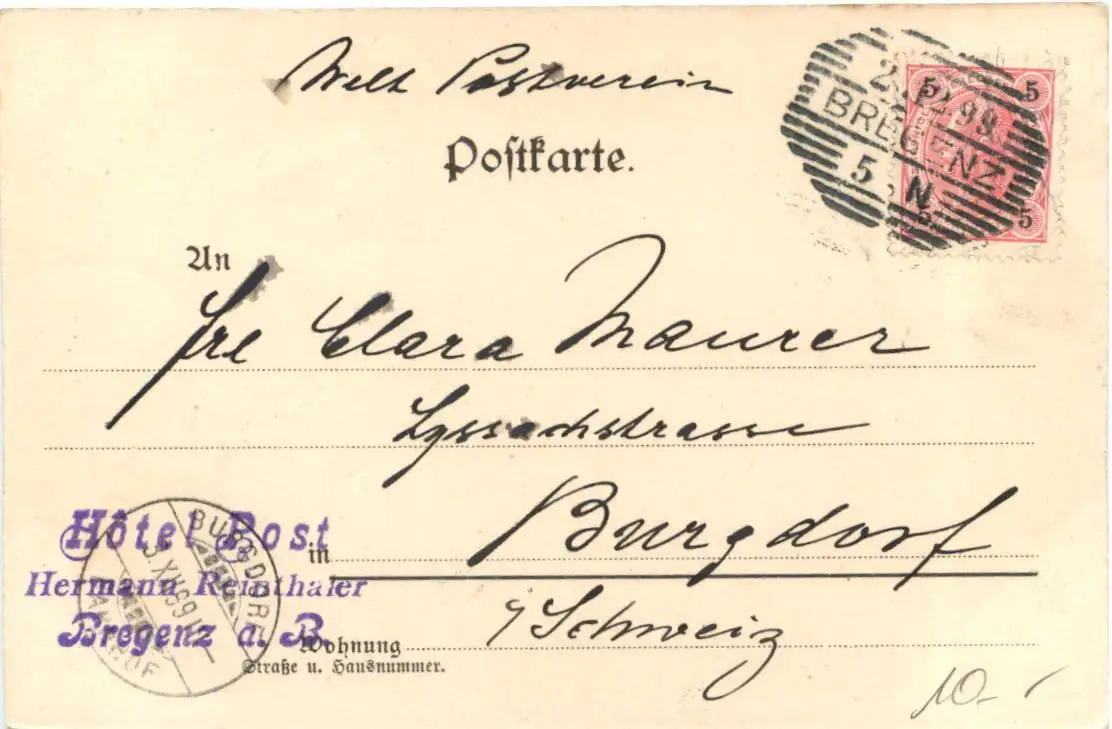 Welt Postverein
Postkarte.
5 5
2.12.99
BREGENZ
5 N
5 5
An
Frl Clara Maurer
Lyssachstrasse
in Burgdorf
i/Schweiz
Hôtel Post
Hermann Reinthaler
Bregenz a. B.
BURGDORF
XII.99
Wohnung
Straße u. Hausnummer.
10.-